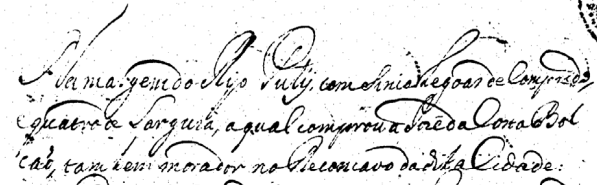 Na margem do Rio Puty, com sinco legoas de Comprido,
e quatro de Largura, a qual comprou a Joze da Costa Bol
cão, também morador no Reconcavo da dita Cidade: